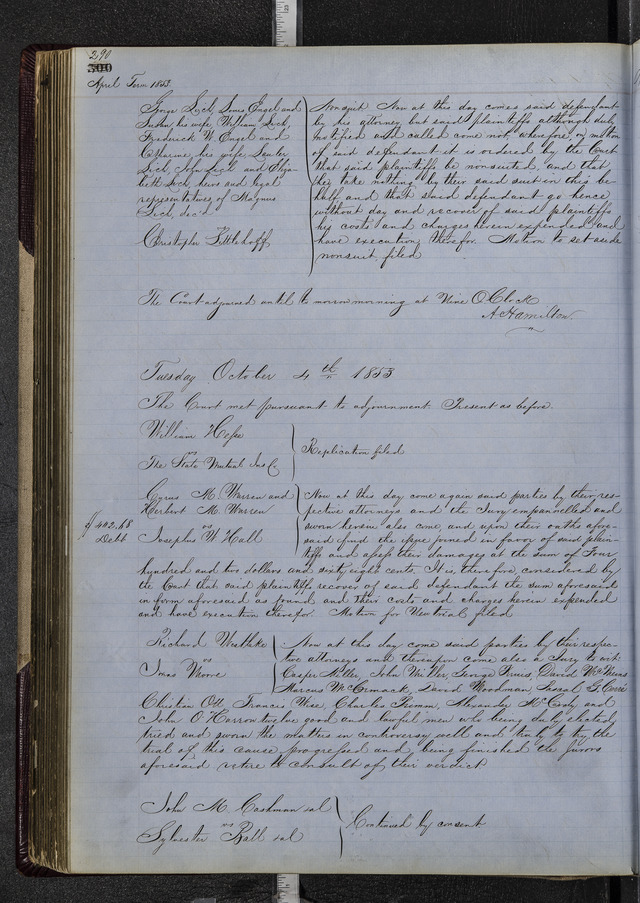 290
500
April Term 1853
George Lich, Louis Engel and
his wife, William Lich
Frederick W Engel and
his wife,
Lich, John Lich and Eliza-
beth Lich, heirs and legal
representatives of Magnus
Lich, dec'd
Christoph
Nonsuit Now at this day comes said defendant
by his attorney but said plaintiffs although duly
notified and called come not, wherefore, on motion
of said defendant it is ordered by the Court
that said plaintiffs be nonsuited, and that
they take nothing by their said suit in this be-
half, and that said defendant go hence
without day and recover of said plaintiffs
his costs and charges herein expended and
have execution therefor. Motion to set aside
nonsuit filed
The Court adjourned until to morrow morning at Nine O'Clock
A Hamilton
Tuesday October 4th 1853
The Court met pursuant to adjournment. Present as before.
William Hesse
vs
The State Mutual Ins Co
Replication filed
$402,68
Debt
Cyrus M. Warren and
Herbert M. Warren
vs
Josephus W Hall
Now at this day come again said parties by their res-
pective attorneys and the Jury empannelled and
sworn herein also come, and upon their oaths afore-
said find the issue joined in favor of said plain-
tiffs and assess their damages at the sum of Four
hundred and two dollars and sixty eight cents. It is, therefore, considered by
the Court that said plaintiffs recover of said defendant the sum aforesaid
in form aforesaid as found and their costs and charges herein expended
and have execution therefor. Motion for New trial filed
Richard
vs
Moore
Now at this day come said parties by their respec-
tive attorneys and thereupon come also a Jury to wit:
Casper Miller, John Miller, George Bruns, David
Marcus McCormack, David Woodman, Pascal
Christian Ott, Francis Wise, Charles Alexander McCoy and
John O'Harron twelve good and lawful men who being duly elected,
tried and sworn the matters in controversy well and truly to try the
trial of this cause progressed and being finished the jurors
aforesaid retire to consult of their verdict
John M. Cashman sal
vs
Sylvester Ball sal
Continued by consent